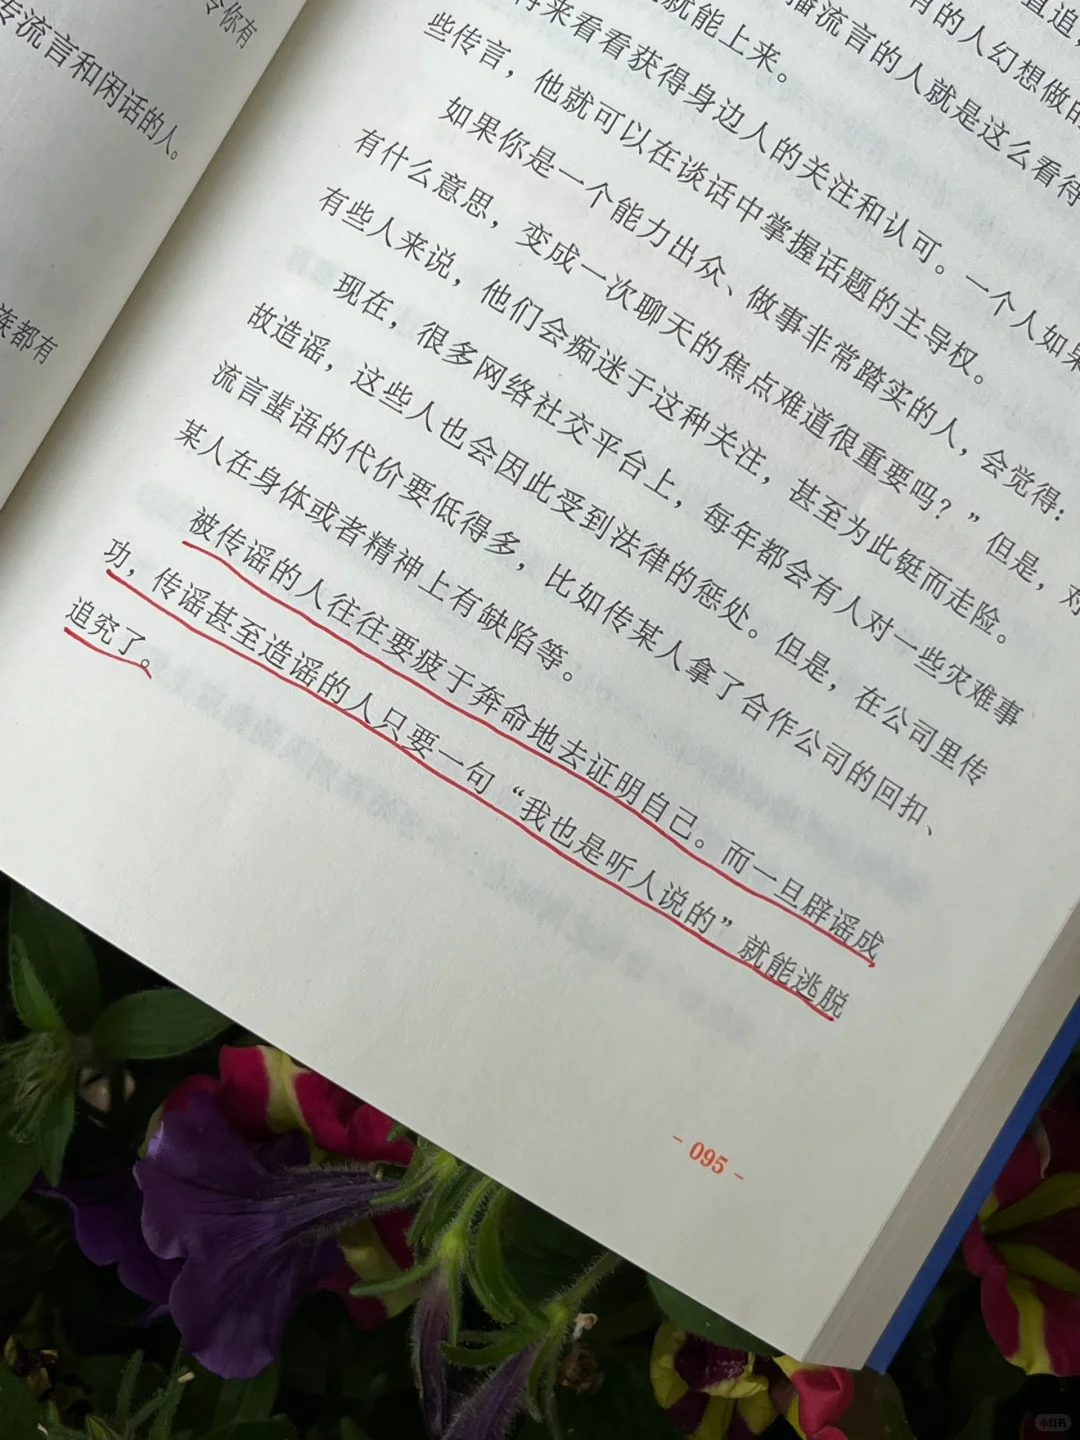 令你有
传流言和闲话的人。
族都有
直追，
有的人幻想做的
播流言的人就是这么看待
就能上来。
再来看看获得身边人的关注和认可。一个人如果
些传言，他就可以在谈话中掌握话题的主导权。
如果你是一个能力出众、做事非常踏实的人，会觉得：
有什么意思，变成一次聊天的焦点难道很重要吗？”但是，对
有些人来说，他们会痴迷于这种关注，甚至为此铤而走险。
现在，很多网络社交平台上，每年都会有人对一些灾难事
故造谣，这些人也会因此受到法律的惩处。但是，在公司里传
流言蜚语的代价要低得多，比如传某人拿了合作公司的回扣、
某人在身体或者精神上有缺陷等。
被传谣的人往往要疲于奔命地去证明自己。而一旦辟谣成
功，传谣甚至造谣的人只要一句“我也是听人说的”就能逃脱
追究了。
- 095 -
小红书